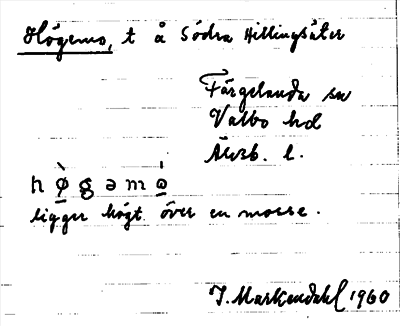 Högemo, t å Södra Hillingsäter
Färgelanda sn
Valbo hd
Älvsb. l.
ligger högt över en mosse.
J. Markendahl 1960